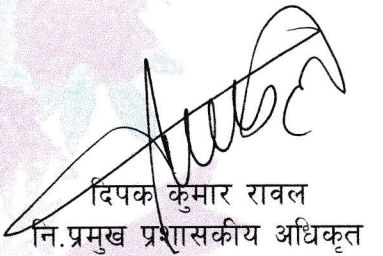 दिपक कुमार रावल
नि.प्रमुख प्रशासकीय अधिकृत